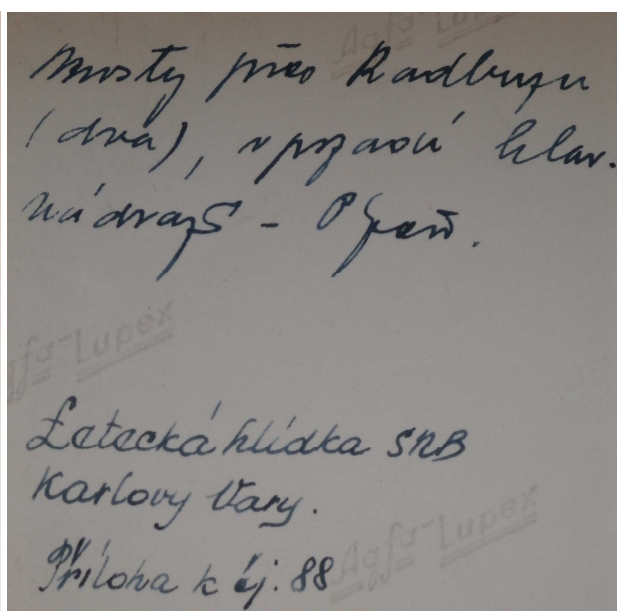 Agfa-Lupex
Mosty přes Radbuzu
(dva), v pozadí hlav.
nádraží - Plzeň.
Agfa-Lupex
Letecká hlídka SNB
Karlovy Vary.
Agfa-Lupex
Příloha k čj. 88